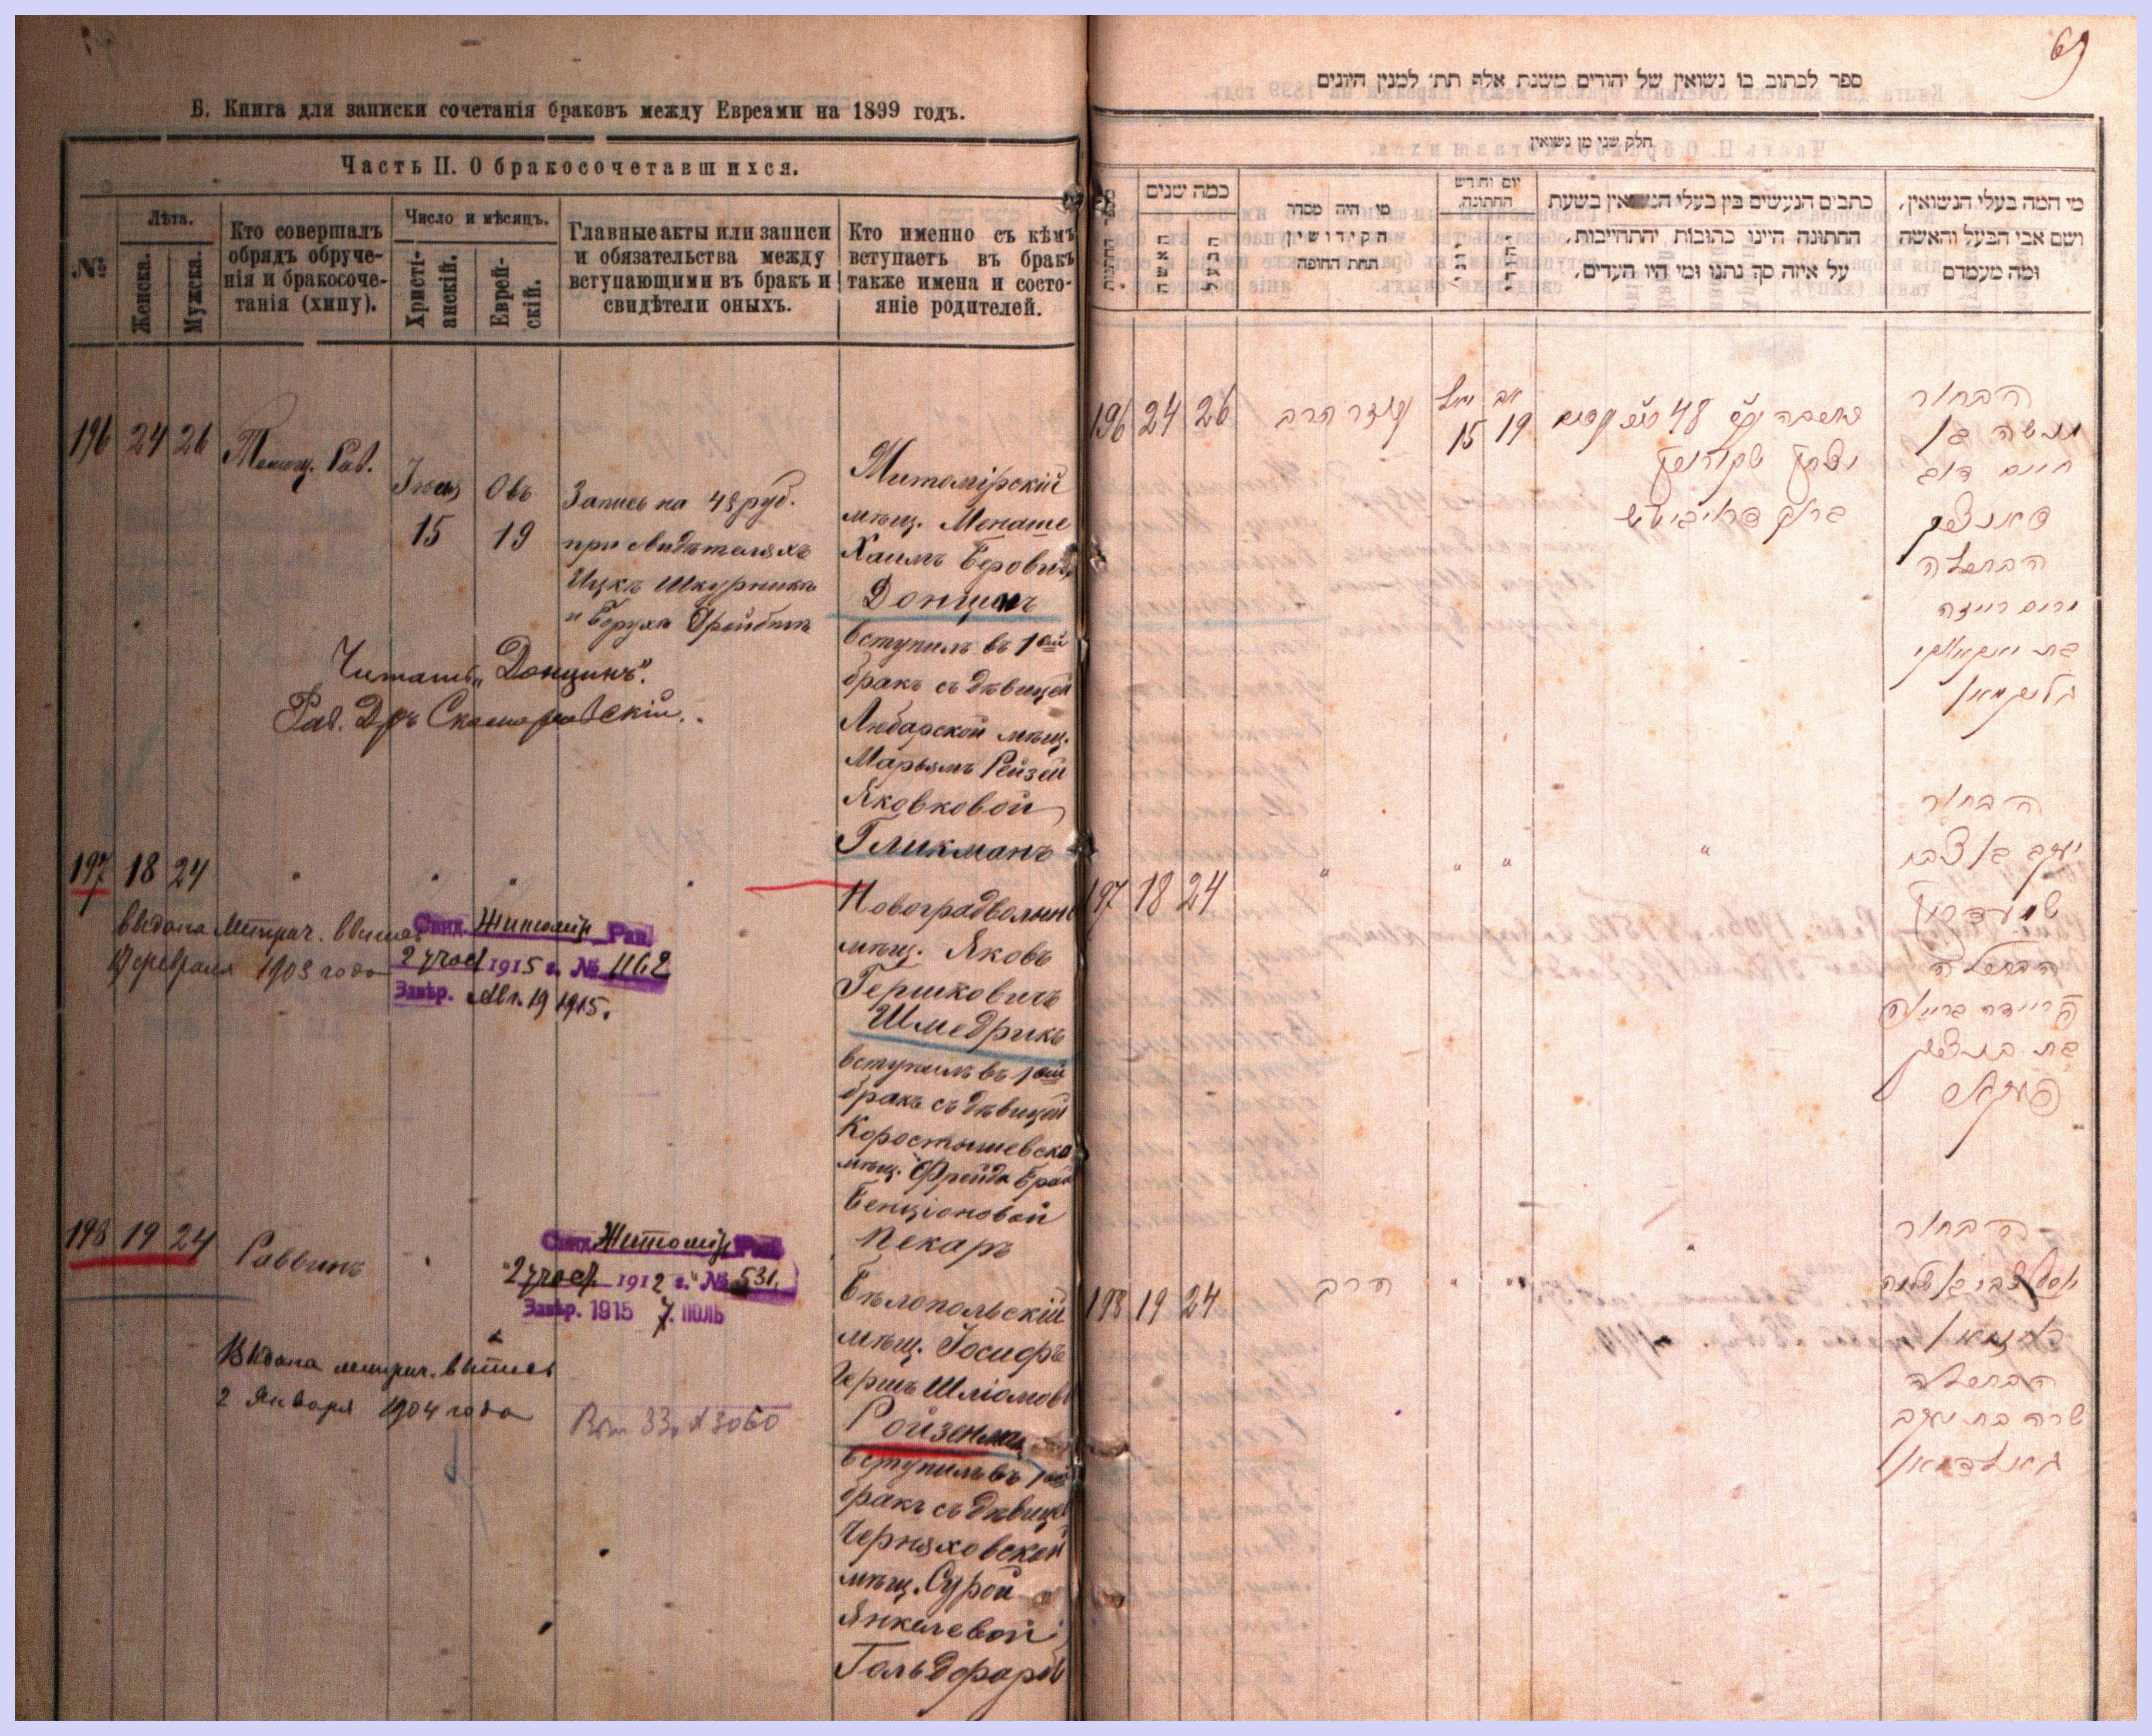 Б. Книга для записки сочетанія браковъ между Евреями на 1899 годъ.
Часть II. О бракосочетавшихся.
№
Лѣта.
Женска.
Мужска.
Кто совершалъ
обрядъ обруче-
нія и бракосоче-
танія (хипу).
Число и мѣсяцъ.
Христі-
анскій.
Еврей-
скій.
Главные акты или записи
и обязательства между
вступающими въ бракъ и
свидѣтели оныхъ.
Кто именно съ кѣмъ
вступаетъ въ бракъ
также имена и состо-
яніе родителей.
196 24 26
Помощ. Рав.
Іюля
15
Овъ
19
Запись на 48 руб.
при свидѣтеляхъ
Ицкъ Шкурникъ
и Борухъ
Житомірскій
мѣщ. Менаше
Хаимъ Беровичъ
Донцинъ
вступилъ въ 1ый
бракъ съ дѣвицей
Любарской мѣщ.
Марьямъ Рейзей
Янковковой
Гликманъ
Читать „Донцинъ".
Рав. Д-ръ Скоморовскій.
197 18 24
" " " "
Выдана метрич. выпись
17 февраля 1903 года
Свид. Житомір. Рав.
2 участ 1915 г. № 1162
Завѣр. Авг. 19 1915.
Новоградволынс
мѣщ. Яковъ
Гершковичъ
Шмедрикъ
вступилъ въ 1ый
бракъ съ дѣвицей
Коростышевско
мѣщ. Фрейда Брай
Бенціоновой
Пекаръ
198 19 24
Раввинъ
"
Свид. Житомір Рав.
2 участ. 1912 г. № 531
Завѣр. 1915 7. ІЮЛЬ
Выдана метрич. выпись
2 Января 1904 года
33 № 3060
Бѣлопольскій
мѣщ. Іосифъ
Гершъ Шліомов
Ройзенман
вступилъ въ 1ый
бракъ съ дѣвице
Черняховской
мѣщ. Сурой
Янкелевой
Гольдфарбъ
69
ספר לכתוב בו נשואין של יהודים משנת אלף תת׳ למנין היונים
חלק שני מן נשואין
כמה שנים
האשה
הבעל
מי היה מסדר
הקידושין
תחת החופה
יום וחודש
החתונה
כתבים הנעשים בין בעלי הנשואין בשעת
החתונה היינו כתובות יהתחייבות,
על איזה סך נתנו ומי היו העדים,
מי המה בעלי הנשואין,
ושם אבי הבעל והאשה
ומה מעמדם
196 24 26
הרב
יול
15
אב
19
48
הבחור
מנשה בן
חיים דוב
דאנצין
הבתולה
מרים רייזה
בת
גליקמאן
197 18 24
" " " "
הבחור
יעקב בן צבי
שמעדריק
הבתולה
פריידה בריינא
בת בן ציון
פעקאר
198 19 24
הרב
" " "
הבחור
יוסף צבי בן שלמה
רויזנמאן
הבתולה
שרה בת יעקב